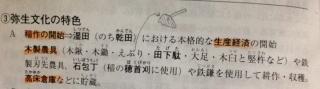 ③弥生文化の特色
A 稲作の開始⇒湿田(のち乾田)における本格的な生産経済の開始
木製農具(木鍬・木鋤・えぶり・田下駄・大足・木臼と竪杵など)や鉄
製刃先農具、石包丁(稲の穂首刈に使用)や鉄鎌を使用して耕作・収穫。
高床倉庫などに貯蔵。